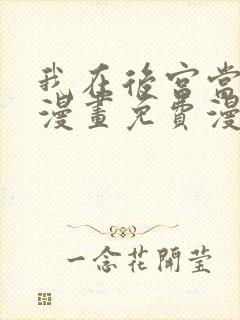 我在後宫當
漫畫免費漫
一念花開莹